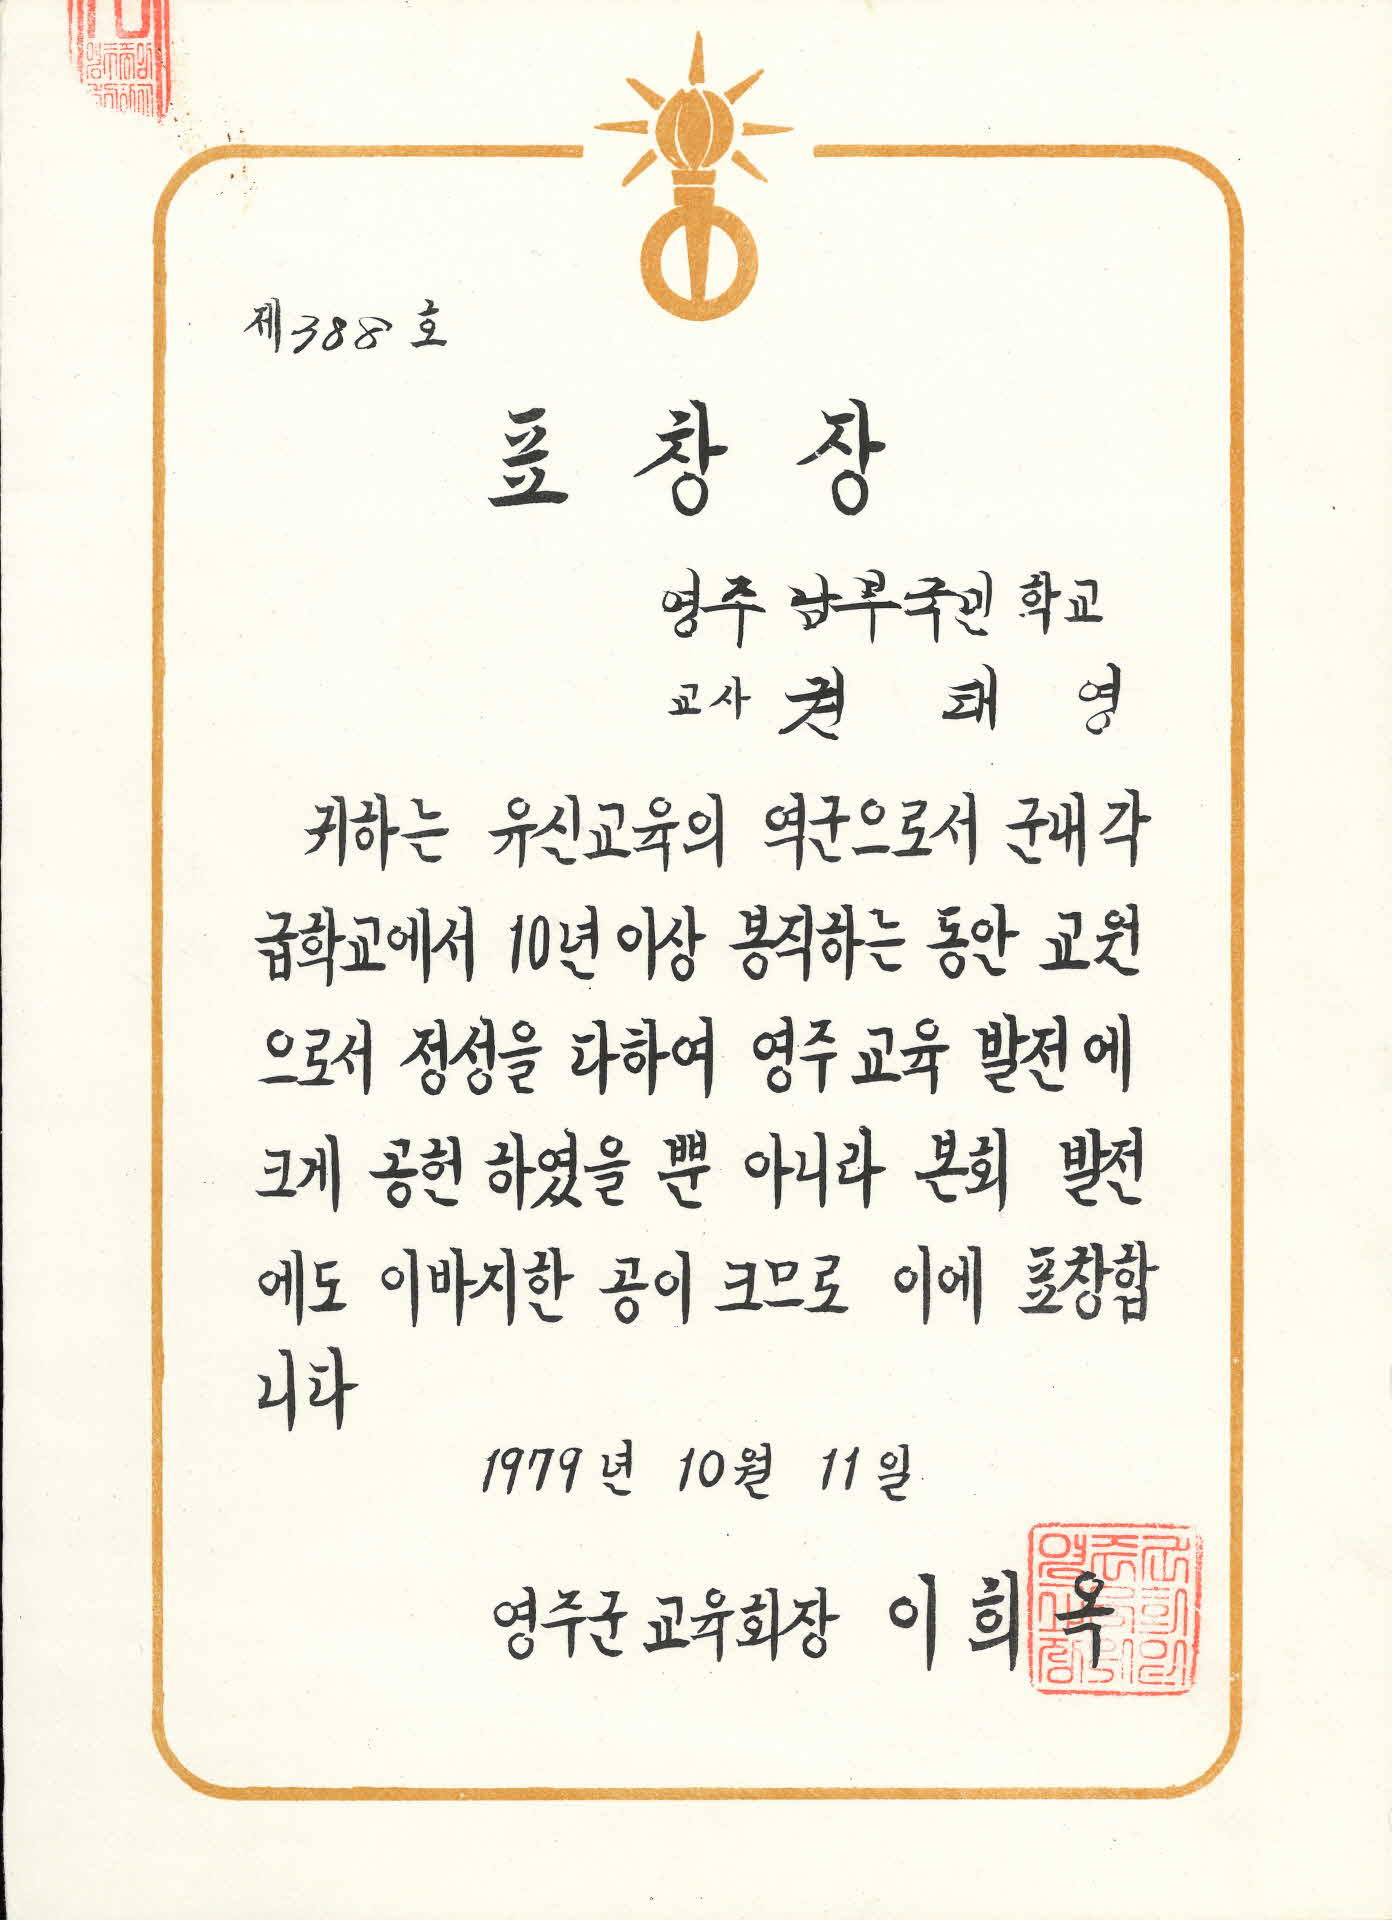 제388호
표창장
영주 남부국민학교
교사 권태영
귀하는 유신교육의 역군으로서 군내 각
급학교에서 10년 이상 봉직하는 동안 교원
으로서 정성을 다하여 영주 교육 발전에
크게 공헌 하였을 뿐 아니라 본회 발전
에도 이바지한 공이 크므로 이에 표창합
니다
1979년 10월 11일
영주군 교육회장 이희옥